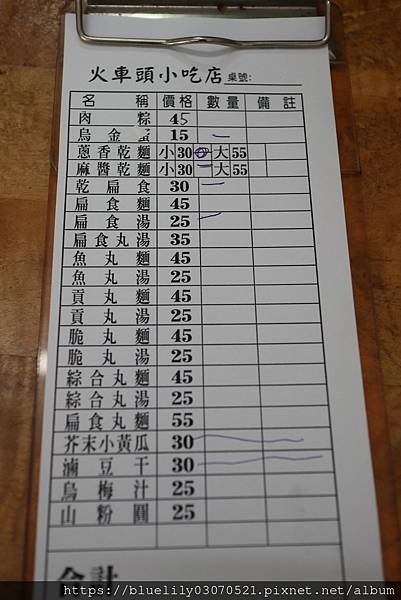 火車頭小吃店 桌號:
名稱 價格 數量 備註
肉粽 45
烏金蛋 15 一
蔥香乾麵 小30 一 大55
麻醬乾麵 小30 一 大55
乾扁食 30 一
扁食麵 45
扁食湯 25 一
扁食丸湯 35
魚丸麵 45
魚丸湯 25
貢丸麵 45
貢丸湯 25
脆丸麵 45
脆丸湯 25
綜合丸麵 45
綜合丸湯 25
扁食丸麵 55
芥末小黃瓜 30
滷豆干 30
烏梅汁 25
山粉圓 25
合計
https://bluelily03070521.pixnet.net/album